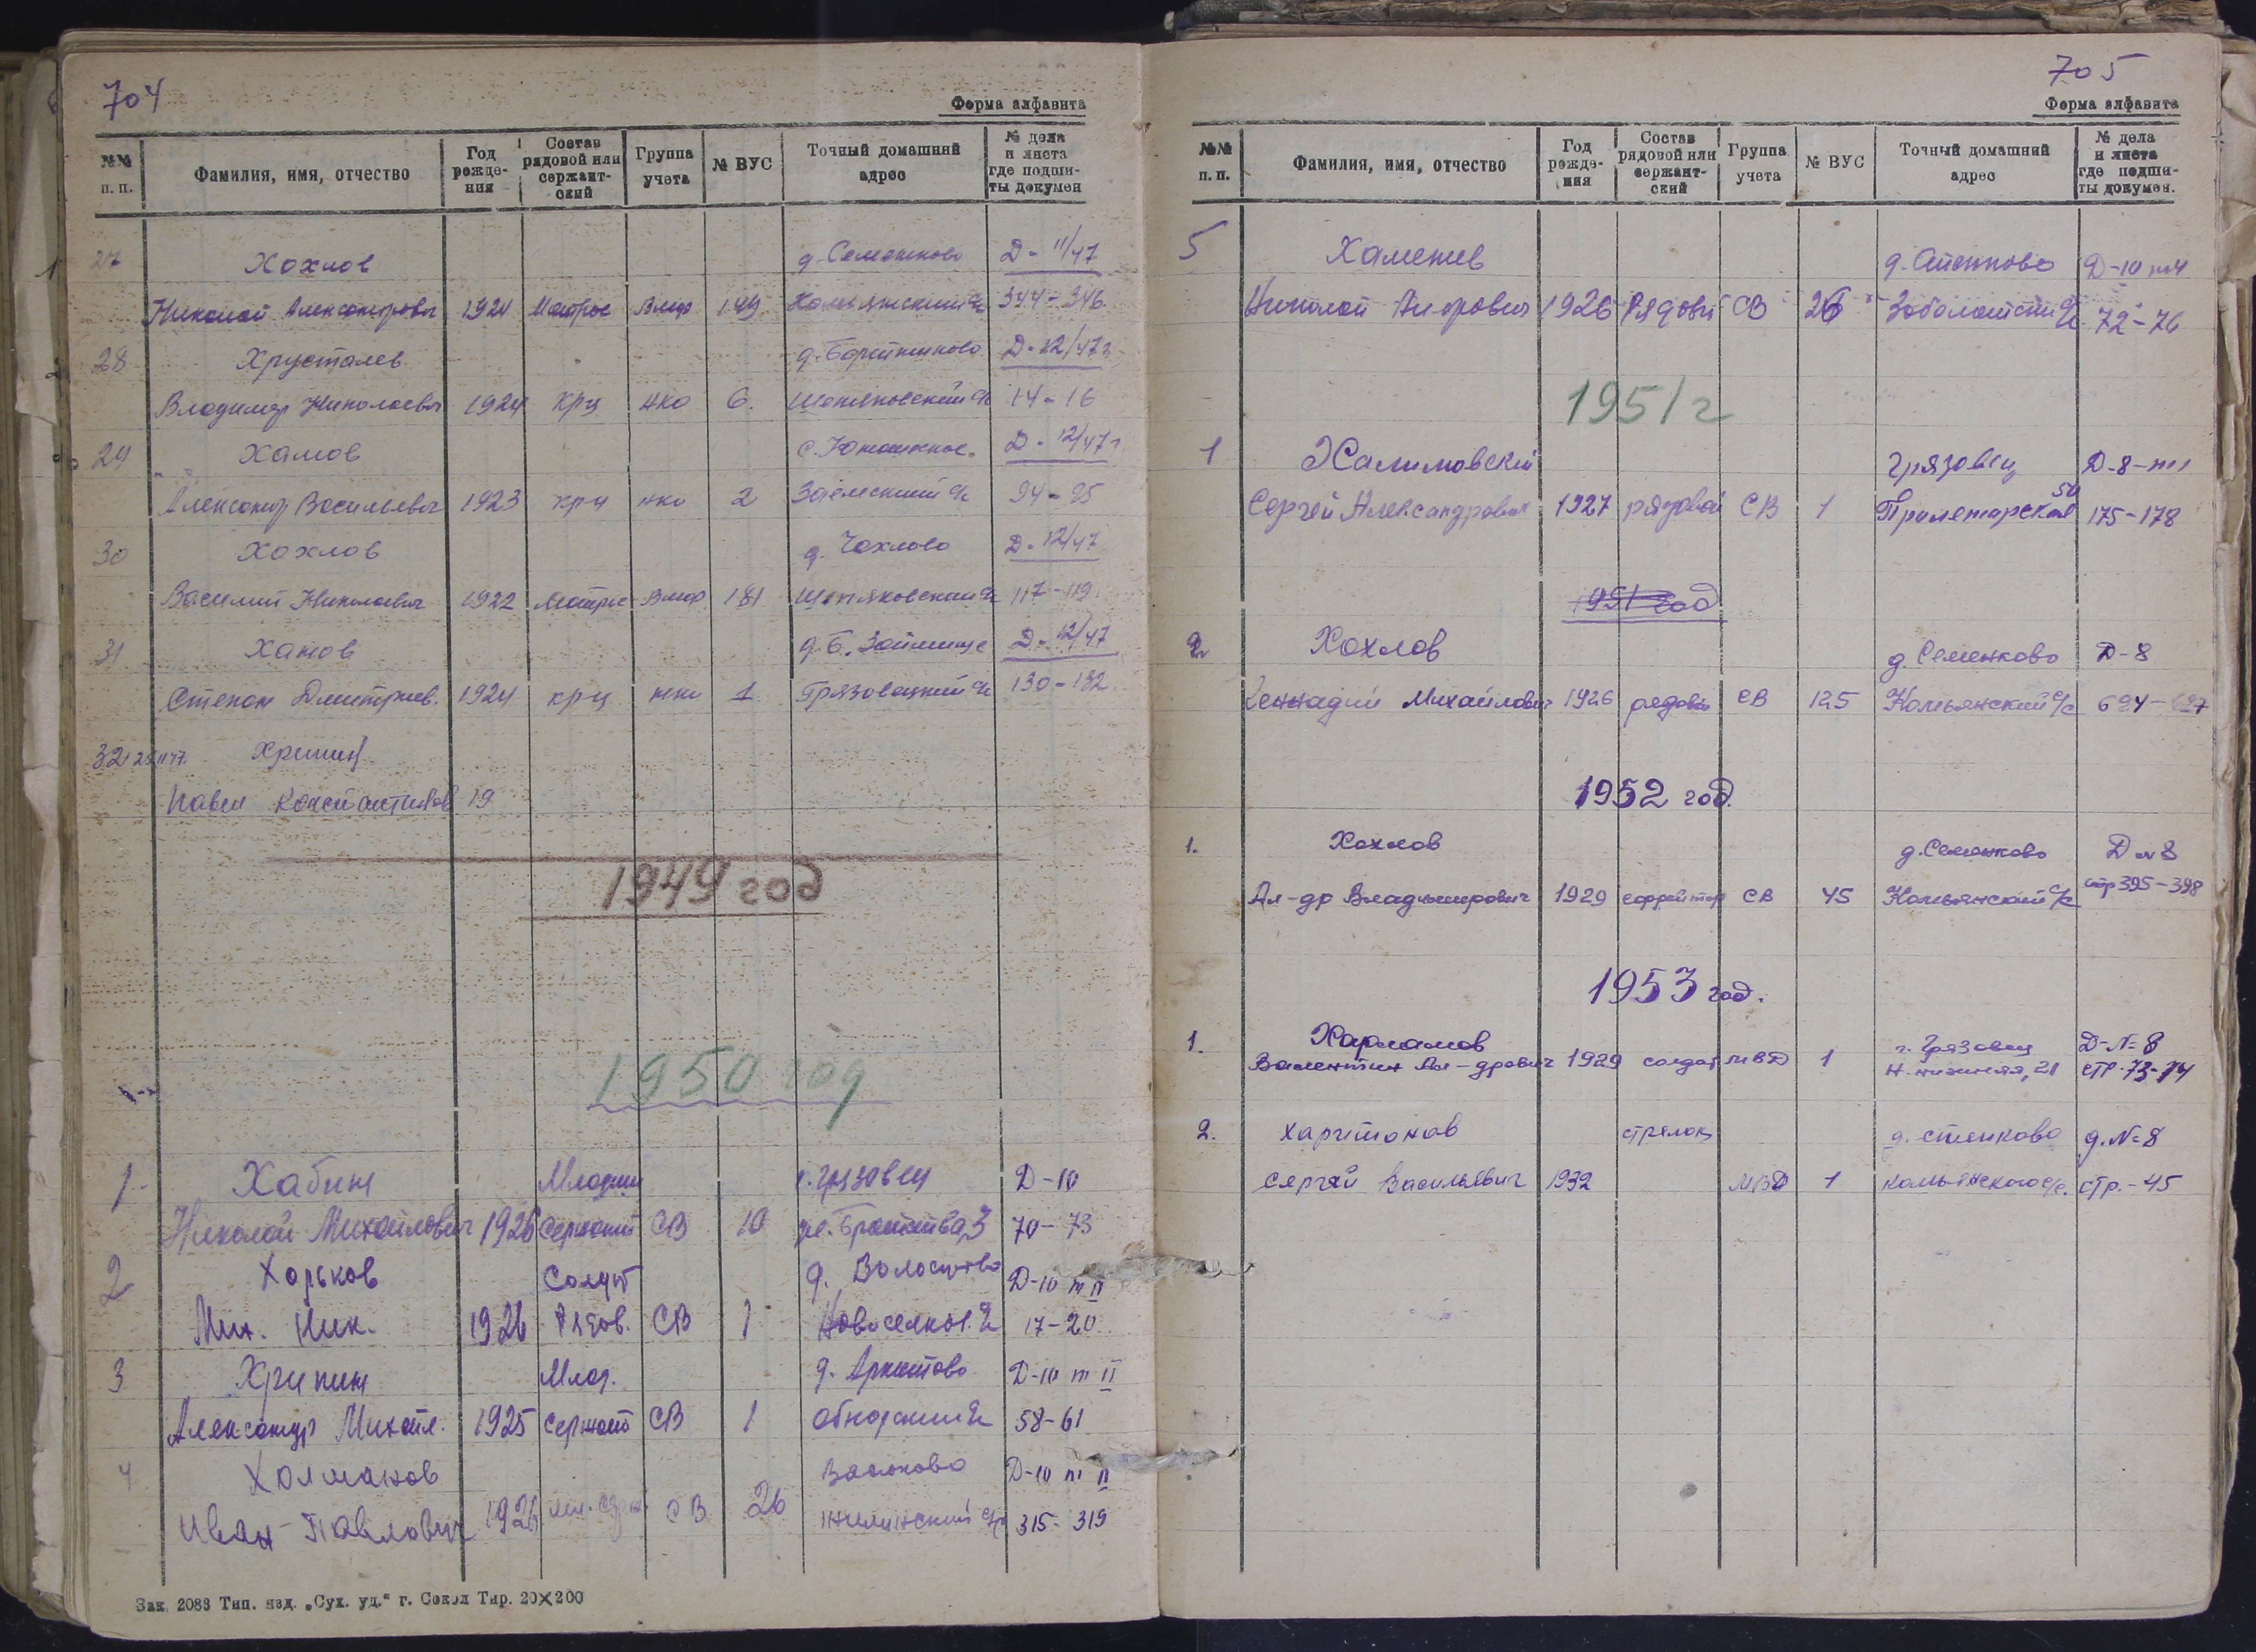 704
Форма алфавита
№№ п. п. Фамилия, имя, отчество Год рожде-ния Состав рядовой или сержант-ский Группа учета № ВУС Точный домашний адрес № дела и листа где подши-ты докумен
27 Хохлов д. Семенково Д-11/47
Николай Александрович 1924 Матрос Вмф 149 344-346
28 Хрусталев Д-12/47г
Владимир Николаевич 1924 крц нко 6. 14-16
29 Хамов с. Юношеское Д-12/47г
Александр Васильевич 1923 крц нко 2 94-95
30 Хохлов д. Чахлово Д-12/47
Василий Николаевич 1922 Матрос Вмф 181 117-119
31 Ханов д. Б. Займище Д-12/47
Степан Дмитриев. 1924 крц нко 1 Грязовецкий с/с 130-132
32
Павел Константинов 19
1949 год
1950 год
1 Хабин Младши г. Грязовец Д-10
Николай Михайлович 1926 Сержант СВ 10 70-73
2 Хорьков Солдат Д-10 т II
Мих. Ник. 1926 Рядов. СВ 1 Новоселков. с/с 17-20
3 Хрипин Млад. Д-10 т II
Александр Михайл. 1925 Сержант СВ 1 Обнорский с/с 58-61
4 Холманов Д-10 т II
Иван Павлович 1926 СВ 26 315-319
Зак. 2083 Тип. изд. „Сух. уд.“ г. Сокол Тир. 20×200
705
Форма алфавита
№№ п. п. Фамилия, имя, отчество Год рожде-ния Состав рядовой или сержант-ский Группа учета № ВУС Точный домашний адрес № дела и листа где подши-ты докумен.
5 Хаменев Д-10
Николай 1926 Рядовой СВ 26 72-76
1951 г
1 Халимовский Грязовец Д-8-т1
Сергей Александрович 1927 рядовой СВ 1 Пролетарская 50 175-178
1951 год
2 Хохлов д. Семенково Д-8
Геннадий Михайлович 1926 рядовой СВ 125 Комьянский с/с 694-697
1952 год.
1. Хохлов д. Семенково Д №8
Ал-др Владимирович 1929 ефрейтор СВ 45 Комьянский с/с стр 395-398
1953 год.
1. Харламов г. Грязовец Д-№8
Валентин Ал-дрович 1929 солдат МВД 1 21 стр. 73-74
2. Харитонов стрелок д. Стенково д. №8
Сергей Васильевич 1932 МВД 1 Комьянского с/с. стр.-45